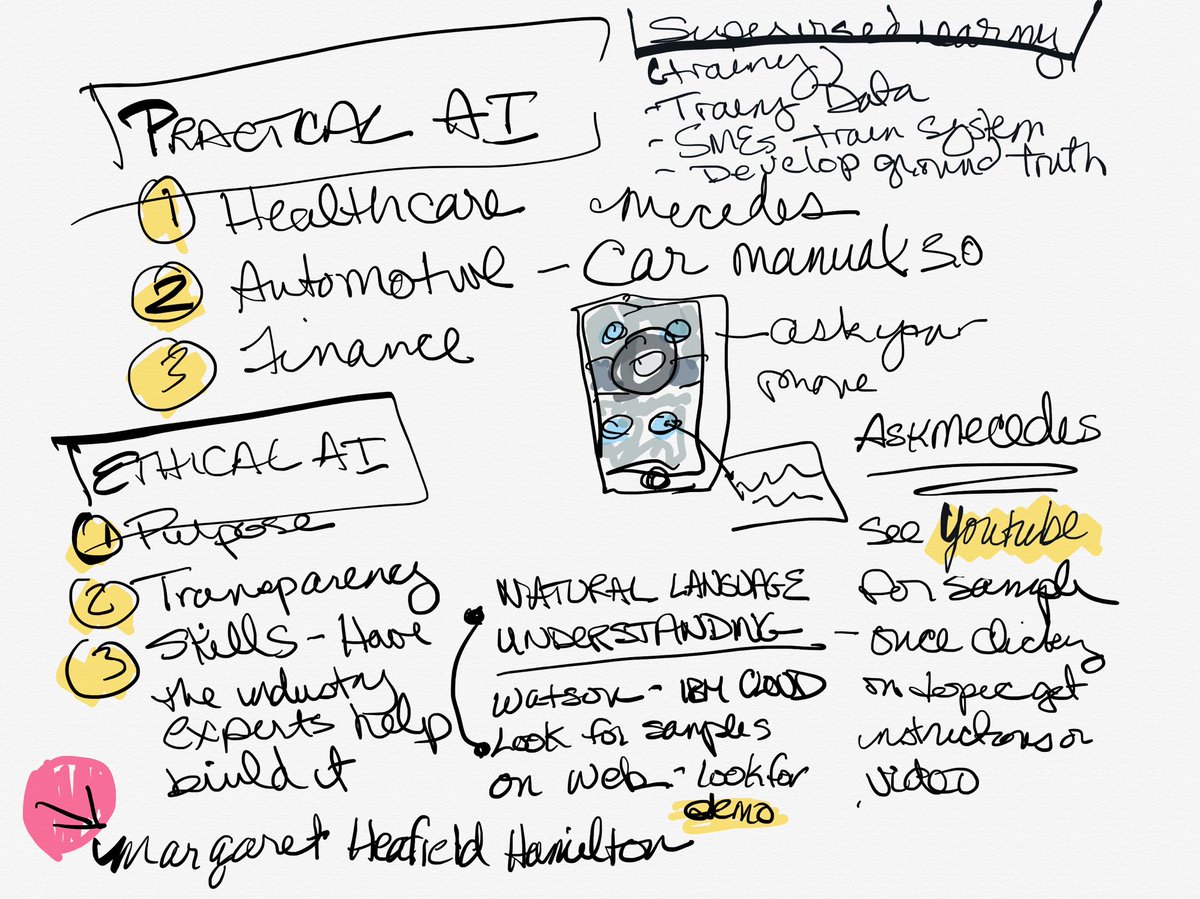 PRACTICAL AI
1 Healthcare
2 Automotive - Car manual 3.0
3 Finance
Supervised learning
(training)
- Traing Data
- SMEs train system
- Develop ground truth
mecedes
- ask your
phone
Askmecedes
See Youtube
For sample
- once clicking
on topic get
instructions or
video
ETHICAL AI
1 Purpose
2 Transparency
3 Skills - Have
the industry
experts help
build it
NATURAL LANGUAGE
UNDERSTANDING
Watson - IBM CLOUD
Look for samples
on web - look for
demo
Margaret Heafield Hamilton